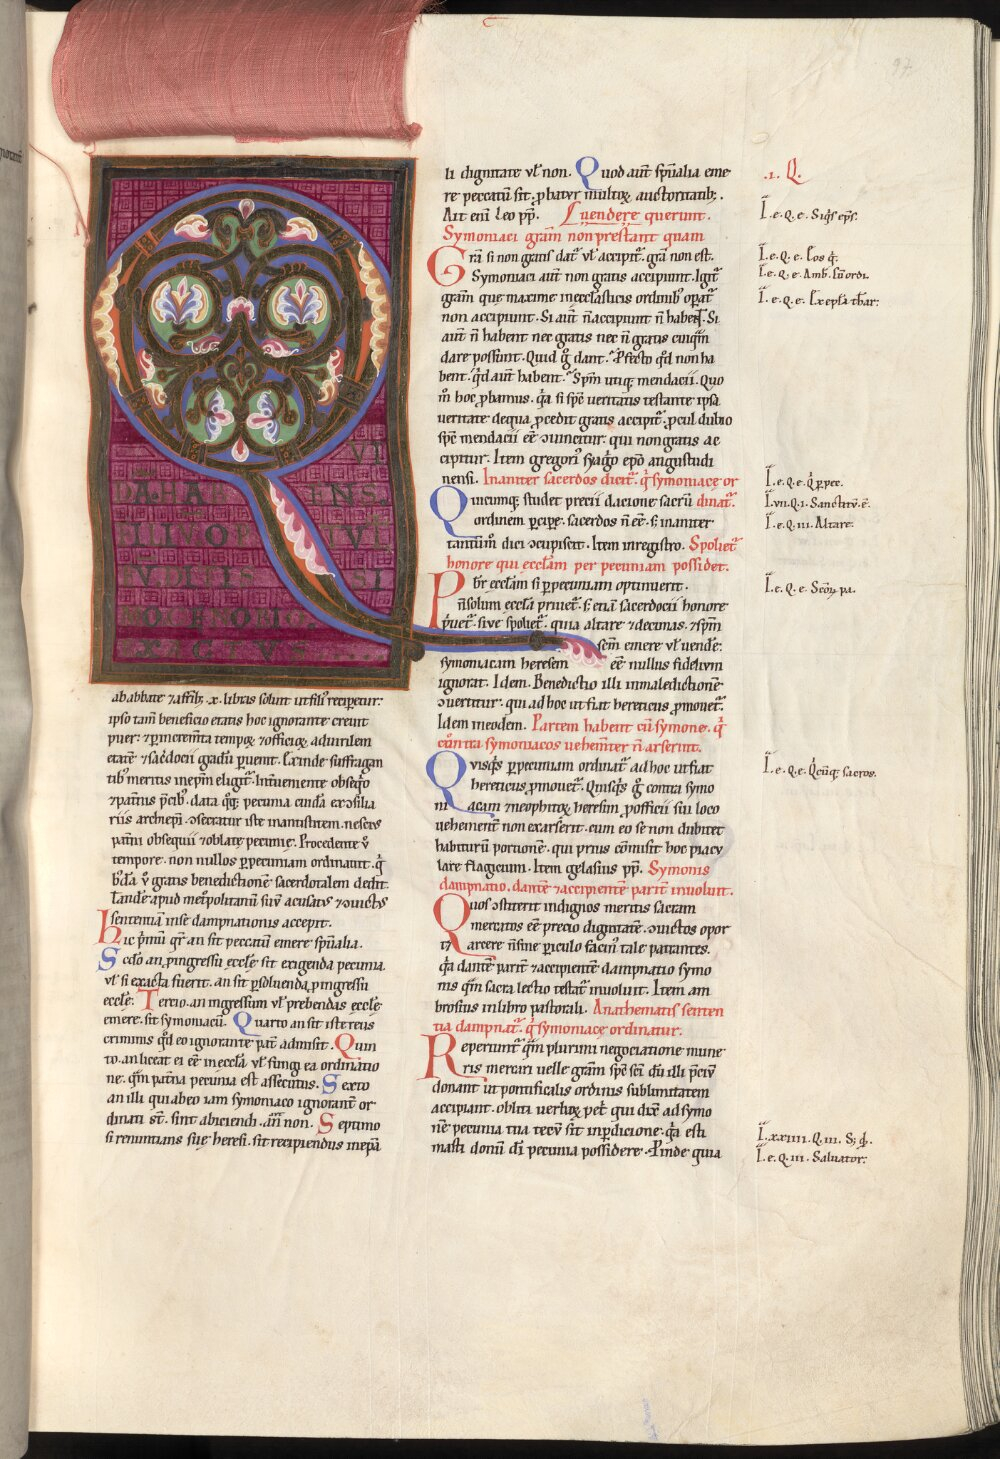 97
VI
DĀ·HAB ENS
FILIV·OP TVL
IT·DITIS SI
MO CENOBIO
EXACTVS
ab abbate ⁊ affrib; .x. libras soluit ut fili᷒ reciperetur:
ipso tam̅ beneficio etatis hoc ignorante creuit
puer: ⁊ p̲ increm̅ta tempoꝝ ⁊ officioꝝ ad uirilem
etatē ⁊ sac̅docii gradū p̲uenit. Exinde suffragan
tib᷒ meritis in ep̅m eligit᷑. Interueniente obseq̇o
⁊ pat̅nis p̅cib᷒. data q̇q; pecunia cuidā ex ↄsilia
riis archiep̅i. ↄsecratur iste in antistitem. nescius
pat̅ni obsequii ⁊ oblatę pecunie. Procedente v̊
tempore. non nullos p̲ pecuniam ordinauit. q̇
b᷒dā v̊ gratis benedictionē sacerdotalem dedit.
Tandē apud met᷑politanū suū acusat᷒ ⁊ ↄuict᷒
sententiam in se dampnationis accepit.
Hic p̅mū qr̅ an sit peccatū emere sp̅ualia.
Scđo an ꝓ ingressu eccłe sit exigenda pecunia.
vł si exacta fuerit. an sit p̲soluenda ꝓ ingressu
eccłe: Tercio. an ingressum vł prebendas eccłę
emere. sit symoniacū. Quarto an sit iste reus
criminis qđ eo ignorante pat̅ admisit. Quin
to. an liceat ei eē in eccła vł fungi ea ordinatio
ne. quā patna pecunia est assecutus. Sexto
an illi qui ab eo iam symoniaco ignorant̅ or
dinati st̅. sint abiciendi. an̅ non. Septimo
si renuntians suę heresi. sit recipiendus in epa̅
li dignitate vł non. Quod aut̅ sp̅ualia eme
re peccatū sit. ꝓbatur multoꝝ auctoritatib;.
Ait eni̅ Leo pp̅. Vendere querunt.
Symoniaci gram̅ non prestant quam
Gra̅ si non gratis dat᷑ vł accipit᷑. gra̅ non est.
Symoniaci aut̅ non gratis accipiunt. Igit᷑
gram̅ que maxime in eccłasticis ordinib᷒ op̲at᷑
non accipiunt. Si aut̅ n̅ accipiunt n̅ habent. Si
aut̅ n̅ habent nec gratis nec n̅ gratis cuiquā
dare possunt. Quid g̊ dant. P̲fecto qđ non ha
bent. qđ aut̅ habent. Sp̅m utiq; mendacii. Quo
m̊ hoc ꝓbamus. q̇a si sp̅c ueritatis testante ipsa
ueritate de qua ꝓcedit gratis accipit᷑. ꝓcul dubio
sp̅c mendacii eē ↄuincitur. qui non gratis ac
cipitur. Item gregori᷒ syag̊o ep̅o augustudi
nensi. Inaniter sacerdos dicit᷑. q̇ symoniacę or
Quicumq; studet precii dacione sacrū dinat᷑.
ordinem p̲cip̲e. sacerdos n̅ eē. s; inaniter
tantum̅ dici ↄcupiscit. Item in registro. Spoliet᷑
honore qui ecclam̅ per pecuniam possidet.
Pbr̅ ecclam̅ si p̲ pecuniam optinuerit.
n̅ solum ecclā priuet᷑. s; eciā sacerdocii honore
p̅uet᷑. siue spoliet᷑. quia altare ⁊ decimas. ⁊ sp̅m
sc̅m emere vł uende̅:
symoniacam heresem eē nullus fidelium
ignorat. Idem. Benedictio illi in maledictionē
ↄuertitur. qui ad hoc ut fiat hereticus ꝓmouet᷑.
Idem in eodem. Partem habent cū symone. q̇
cōntra symoniacos uehem̅ter n̅ arserint.
Quisq̇s p̲ pecuniam ordinat᷑ ad hoc ut fiat
hereticus ꝓmouet᷑. Quisq̇s g̊ contra symo
niacam ⁊ neophitoꝝ heresim. ꝓ officii sui loco
uehement̅ non exarserit. cum eo se non dubitet
habiturū portionē. qui prius cōmisit hoc piacu
lare flagicium. Item gelasius pp̅. Symonis
dampnatio. dante̅ ⁊ accipiente̅ parit̅ inuoluit.
Quos ↄstiterit indignos meritis sacram
mercatos eē precio dignitatē. ↄuictos opor
tꝫ arcere n̅ sine p̲iculo facin᷒ tale patrantes.
q̇a dante̅ parit̅ ⁊ accipiente̅ dampnatio symo
nis quā sacra lectio testat᷑ inuoluit. Item am
brosius in libro pastorali. Anathematis senten
tia dampnat᷑. q̇ symoniacę ordinatur.
Reperiunt᷑ quā plurimi negociatione mune
ris mercari uelle gram̅ sp̅c sc̅i. du̅ illi p̅ciu̅
donant ut pontificalis ordinis sublimitatem
accipiant. obliti uerboꝝ pet̅ qui dixē ad symo
nē pecunia tua tecū sit in p̲dicione. q̇a esti
masti donū di̅ pecunia possidere. P̲inde quia
.I. Q.
I. e. Q. e. Siq̇s ep̅s.
I. e. Q. e. Eos q̇.
I. e. Q. e. Amb.
I. e. Q. e. Ex ep̅la thar:
I. e. Q. e. Q̇ p̲ pec.
I. vii. Q. i. Sanctitū. ē.
I. e. Q. iii. Altare.
I. e. Q. e. Scōꝝ pa.
I. e. Q. e. Q̇cūq; sacros.
I. xxiiii. Q. iii. Si q̇.
I. e. Q. iii. Saluator: